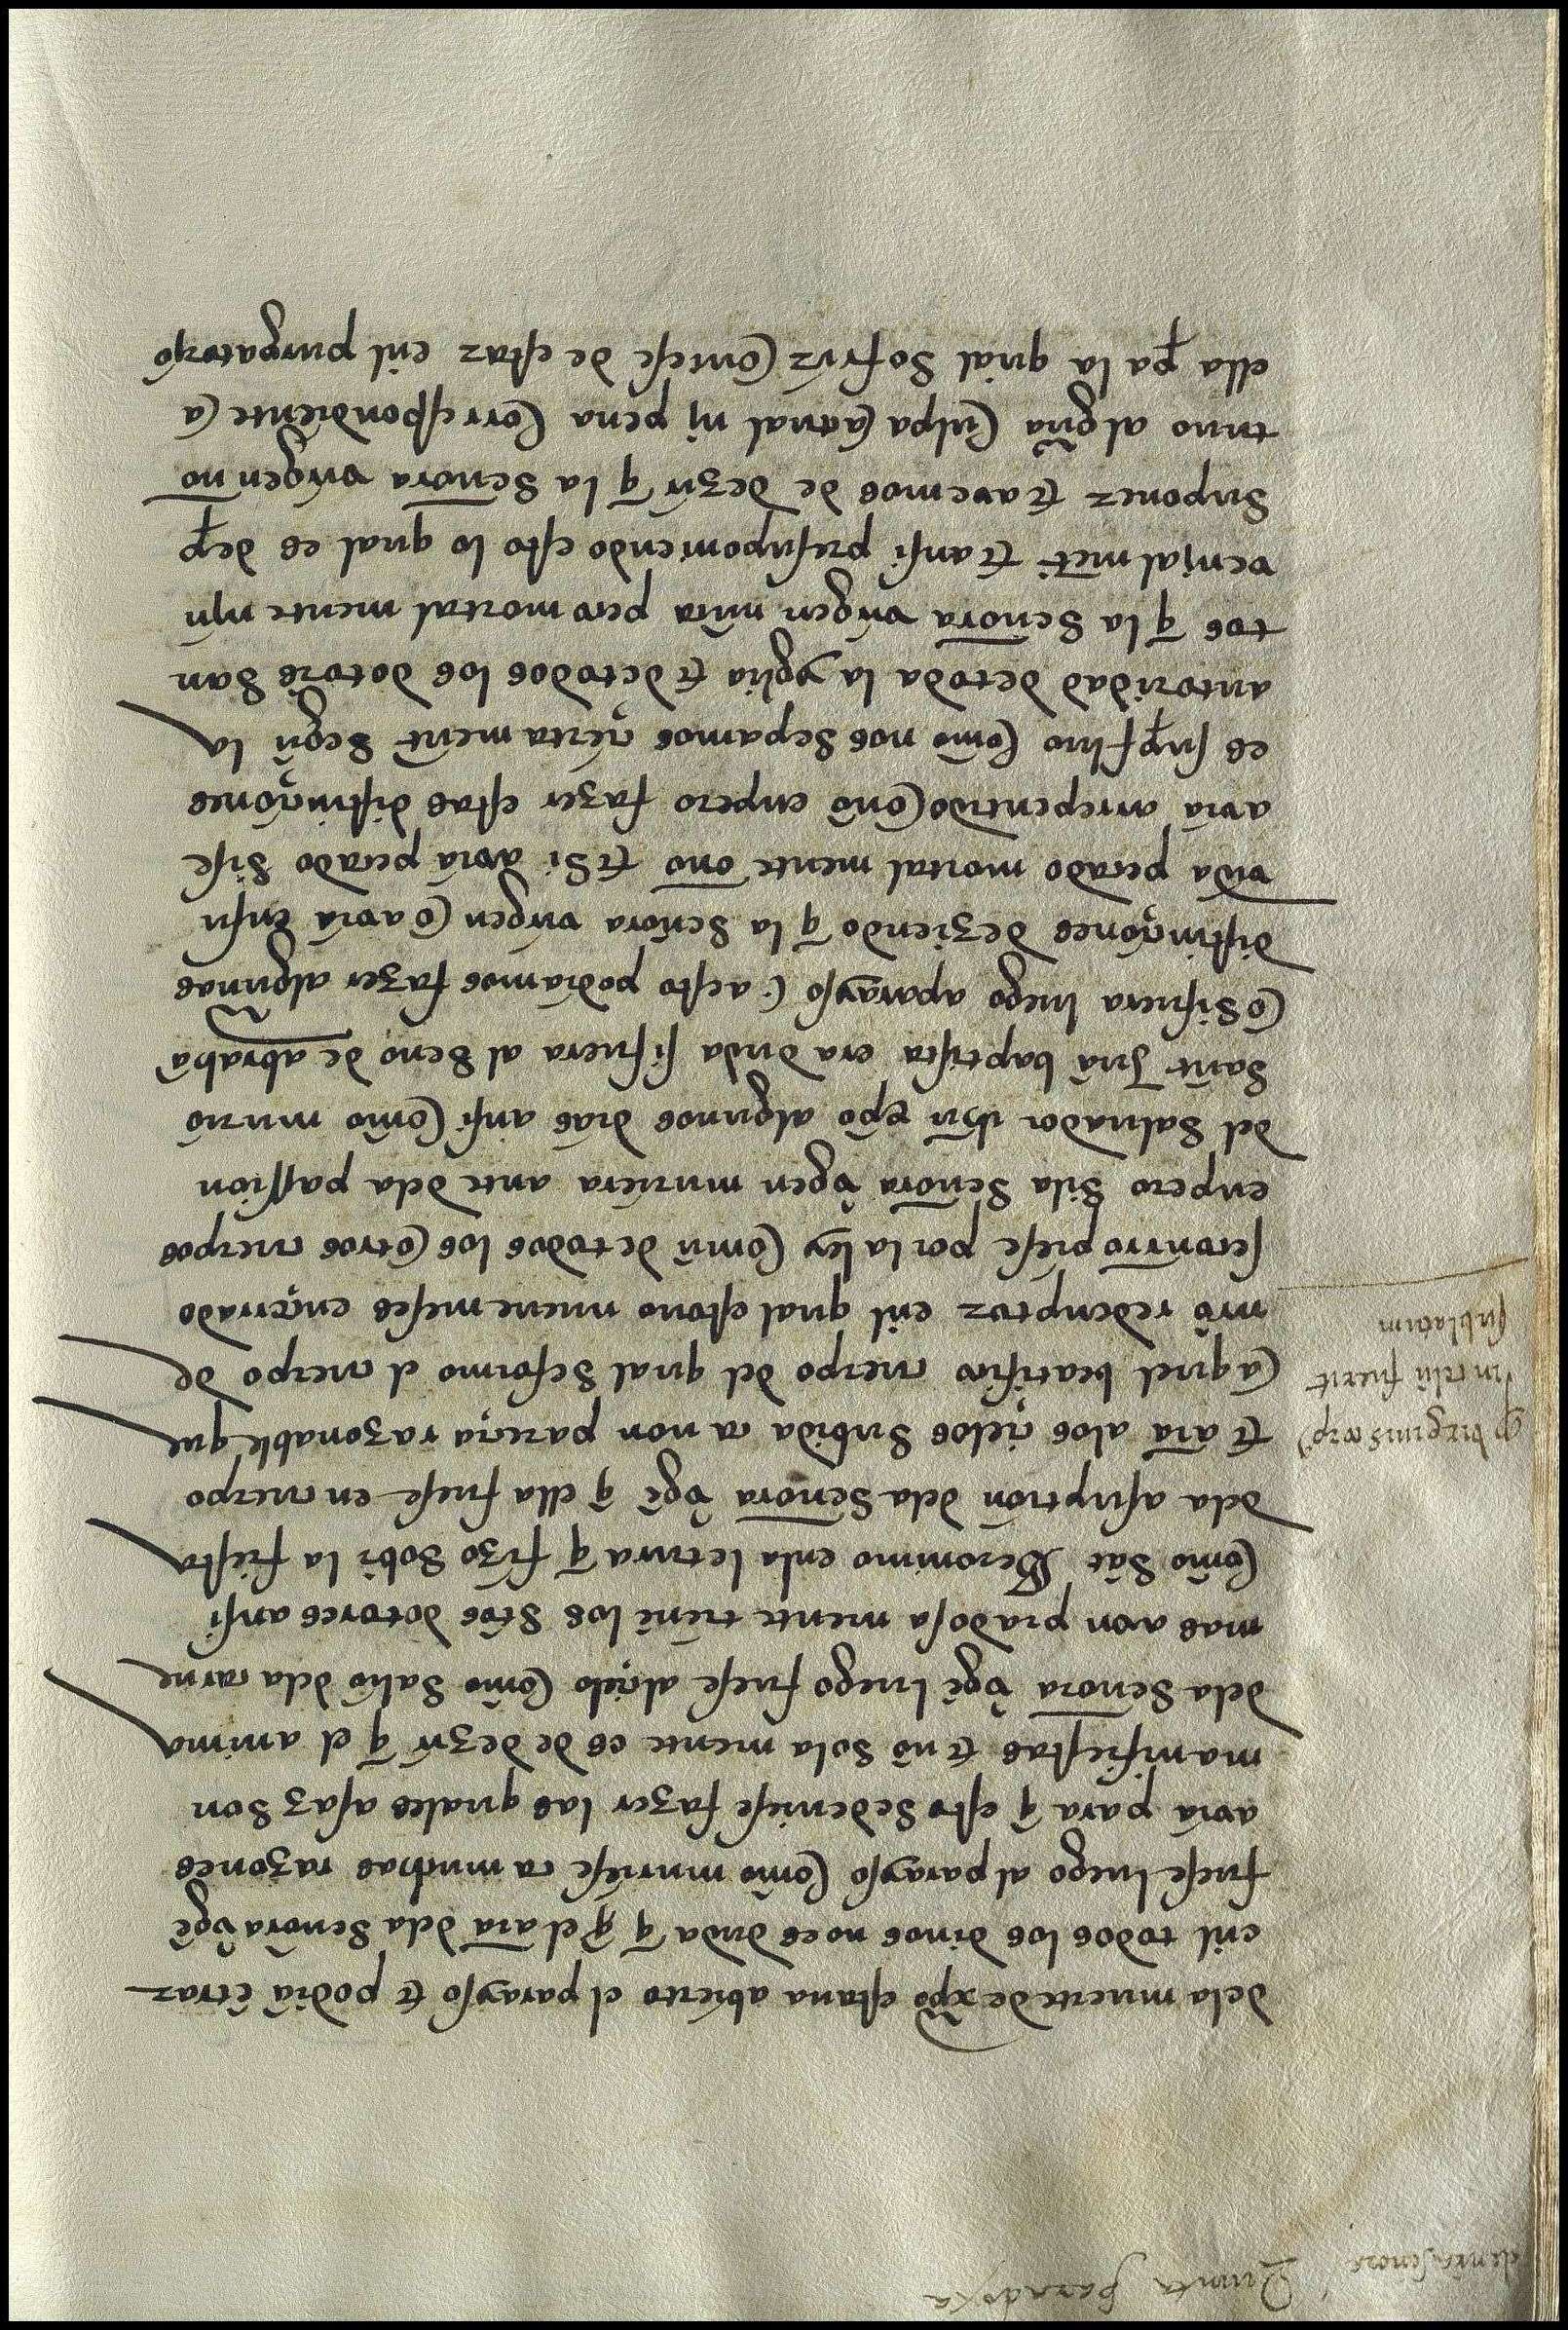 de nr̃a señora
Quinta paradoxa
dela muerte de xp̃o estaua abierto el parayso & podiã ẽtrar
enl todos los dinos no es duda q̃ el aĩa dela señora vgẽ
fuese luego al parayso comõ muriese ca muchas razones
avia para q̃ esto se deuiese fazer las quales asaz son
manifiestas & nõ sola mente es de dezir q̃ el anima
dela señora vgẽ luego fuese alçielo comõ salio dela carne
mas avn piadosa mente tienẽ los stõs dotores ansi
comõ sãt Jeronimo enla letura q̃ fizo sobr̃ la fiesta
dela asuption dela señora vgẽ q̃ ella fuese en cuerpo
& aĩa alos çielos subida ca non pareçia razonable que
aquel beatifico cuerpo del qual se formo el cuerpo de
nr̃o redemptor enl qual estouo nueue meses ençerrado
se conrronpiese por la ley comũ de todos los otros cuerpos
enpero sila señora vgen muriera ante dela passion
del saluador ihũ xp̃o algunos dias ansi comõ murio
sant Juã baptista era duda si fuera al seno de abrahã
o si fuera luego aparayso (aesto podiamos fazer algunas
distinçiones deziendo q̃ la señora virgen o avia ensu
vida pecado mortal mente o nõ & si avia pecado si se
avia arrepentido o nõ enpero fazer estas distinçiones
es sup̱fluo comõ nos sepamos çierta ment segũ la
autoridad de toda la yglia & de todos los dotores san
tos q̃ la señora virgen nũca peco mortal mente nin
venial mẽt & ansi presuponiendo esto lo qual es de p̱
suponer & avemos de dezir q̃ la señora virgen no
tuuo algũa culpa actual ni pena correspondiente a
ella p̱a la qual sofrir ouiese de estar enl purgatorio
q̃ virginis corp᾿
in celũ fuerit
sublatum